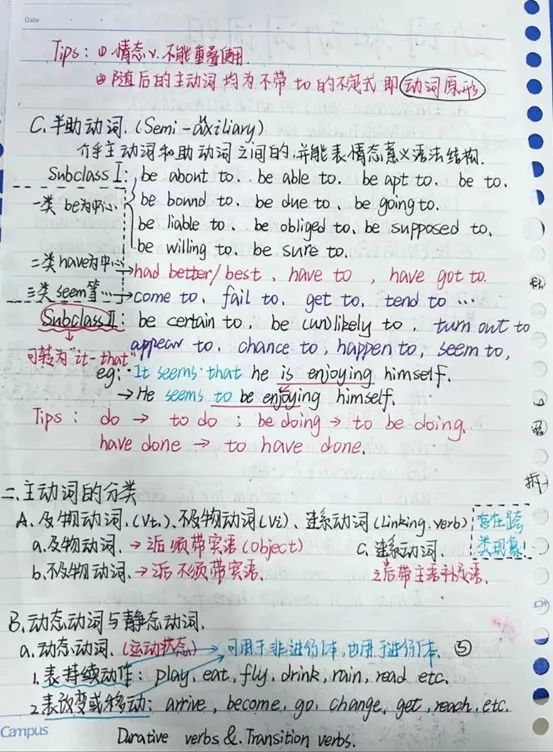 Date
Tips: ① 情态v. 不能重叠使用.
② 随后的主动词均为不带 to 的不定式 即 动词原形
C. 半助动词. (Semi-auxiliary)
介乎主动词和助动词之间的, 并能表情态意义语法结构.
Subclass I: be about to. be able to. be apt to. be to.
一类 be为中心 be bound to. be due to. be going to.
be liable to. be obliged to. be supposed to.
be willing to. be sure to.
二类 have为中心 → had better/best. have to, have got to.
三类 seem等… → come to. fail to. get to. tend to …
Subclass II: be certain to. be (un)likely to. turn out to
appear to. chance to, happen to, seem to,
可转为"it-that"
eg: It seems that he is enjoying himself.
→ He seems to be enjoying himself.
Tips: do → to do; be doing → to be doing.
have done → to have done.
二. 主动词的分类
A. 及物动词. (Vt.)、不及物动词(Vi)、连系动词 (Linking. verb) 存在跨类现象
a. 及物动词. → 之后须带宾语 (object) c. 连系动词.
b. 不及物动词. → 之后不须带宾语. 之后带主语补足语.
B. 动态动词与静态动词.
a. 动态动词. (运动状态) → 可用于非进行体, 也用于进行体.
1. 表持续动作: play, eat, fly, drink, rain, read etc.
2. 表改变或移动: arrive, become, go, change, get, reach, etc.
Durative verbs & Transition verbs.
Campus